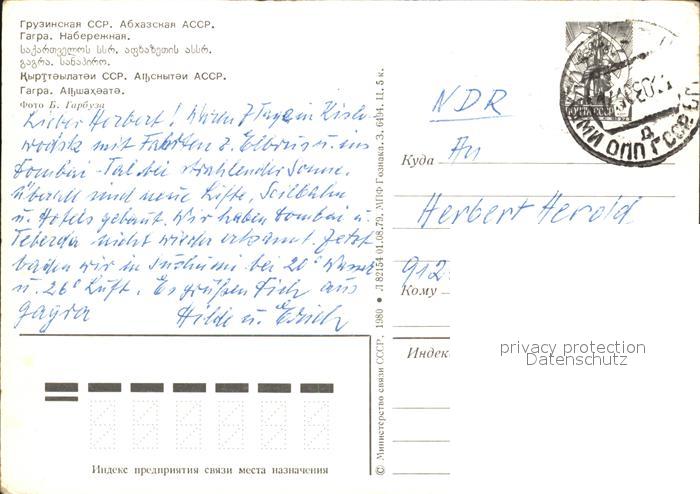 Грузинская ССР. Абхазская АССР.
Гагра. Набережная.
საქართველოს სსრ. აფხაზეთის ასსრ.
გაგრა. სანაპირო.
Қырҭтәылатәи ССР. Аԥснытәи АССР.
Гагра. Аԥшаҳәаҿ.
Фото Б. Гарбуза
Lieber Herbert! Waren 7 Tage in Kislo-
wodsk mit Fahrten z. Elbrus u. ins
Dombai-Tal bei strahlender Sonne.
überall sind neue Lifte, Seilbahn
u. Hotels gebaut. Wir haben Dombai u.
Teberda nicht wieder erkannt. Jetzt
baden wir in Suchumi bei 20° Wasser
u. 26° Luft. Es grüßen Dich aus
Gagra Hilde u. Erich
Индекс предприятия связи места назначения
© Министерство связи СССР. 1980 • Л 82154 01.08.79. МПФ Гознака. З. 6494. Ц. 5 к.
ПОЧТА СССР
NDR
Куда
An
Herbert Herold
912
Кому
Индек
privacy protection
Datenschutz